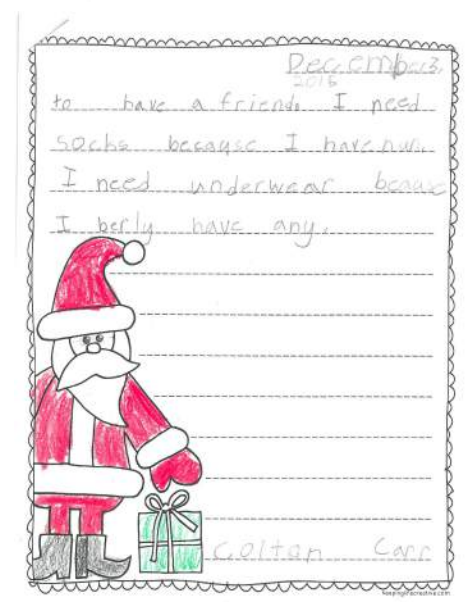 December 3,
2018
to have a friend. I need
socks because I have nun.
I need underwear beause
I berly have any.
Colton Carr
keepingitcreative.com